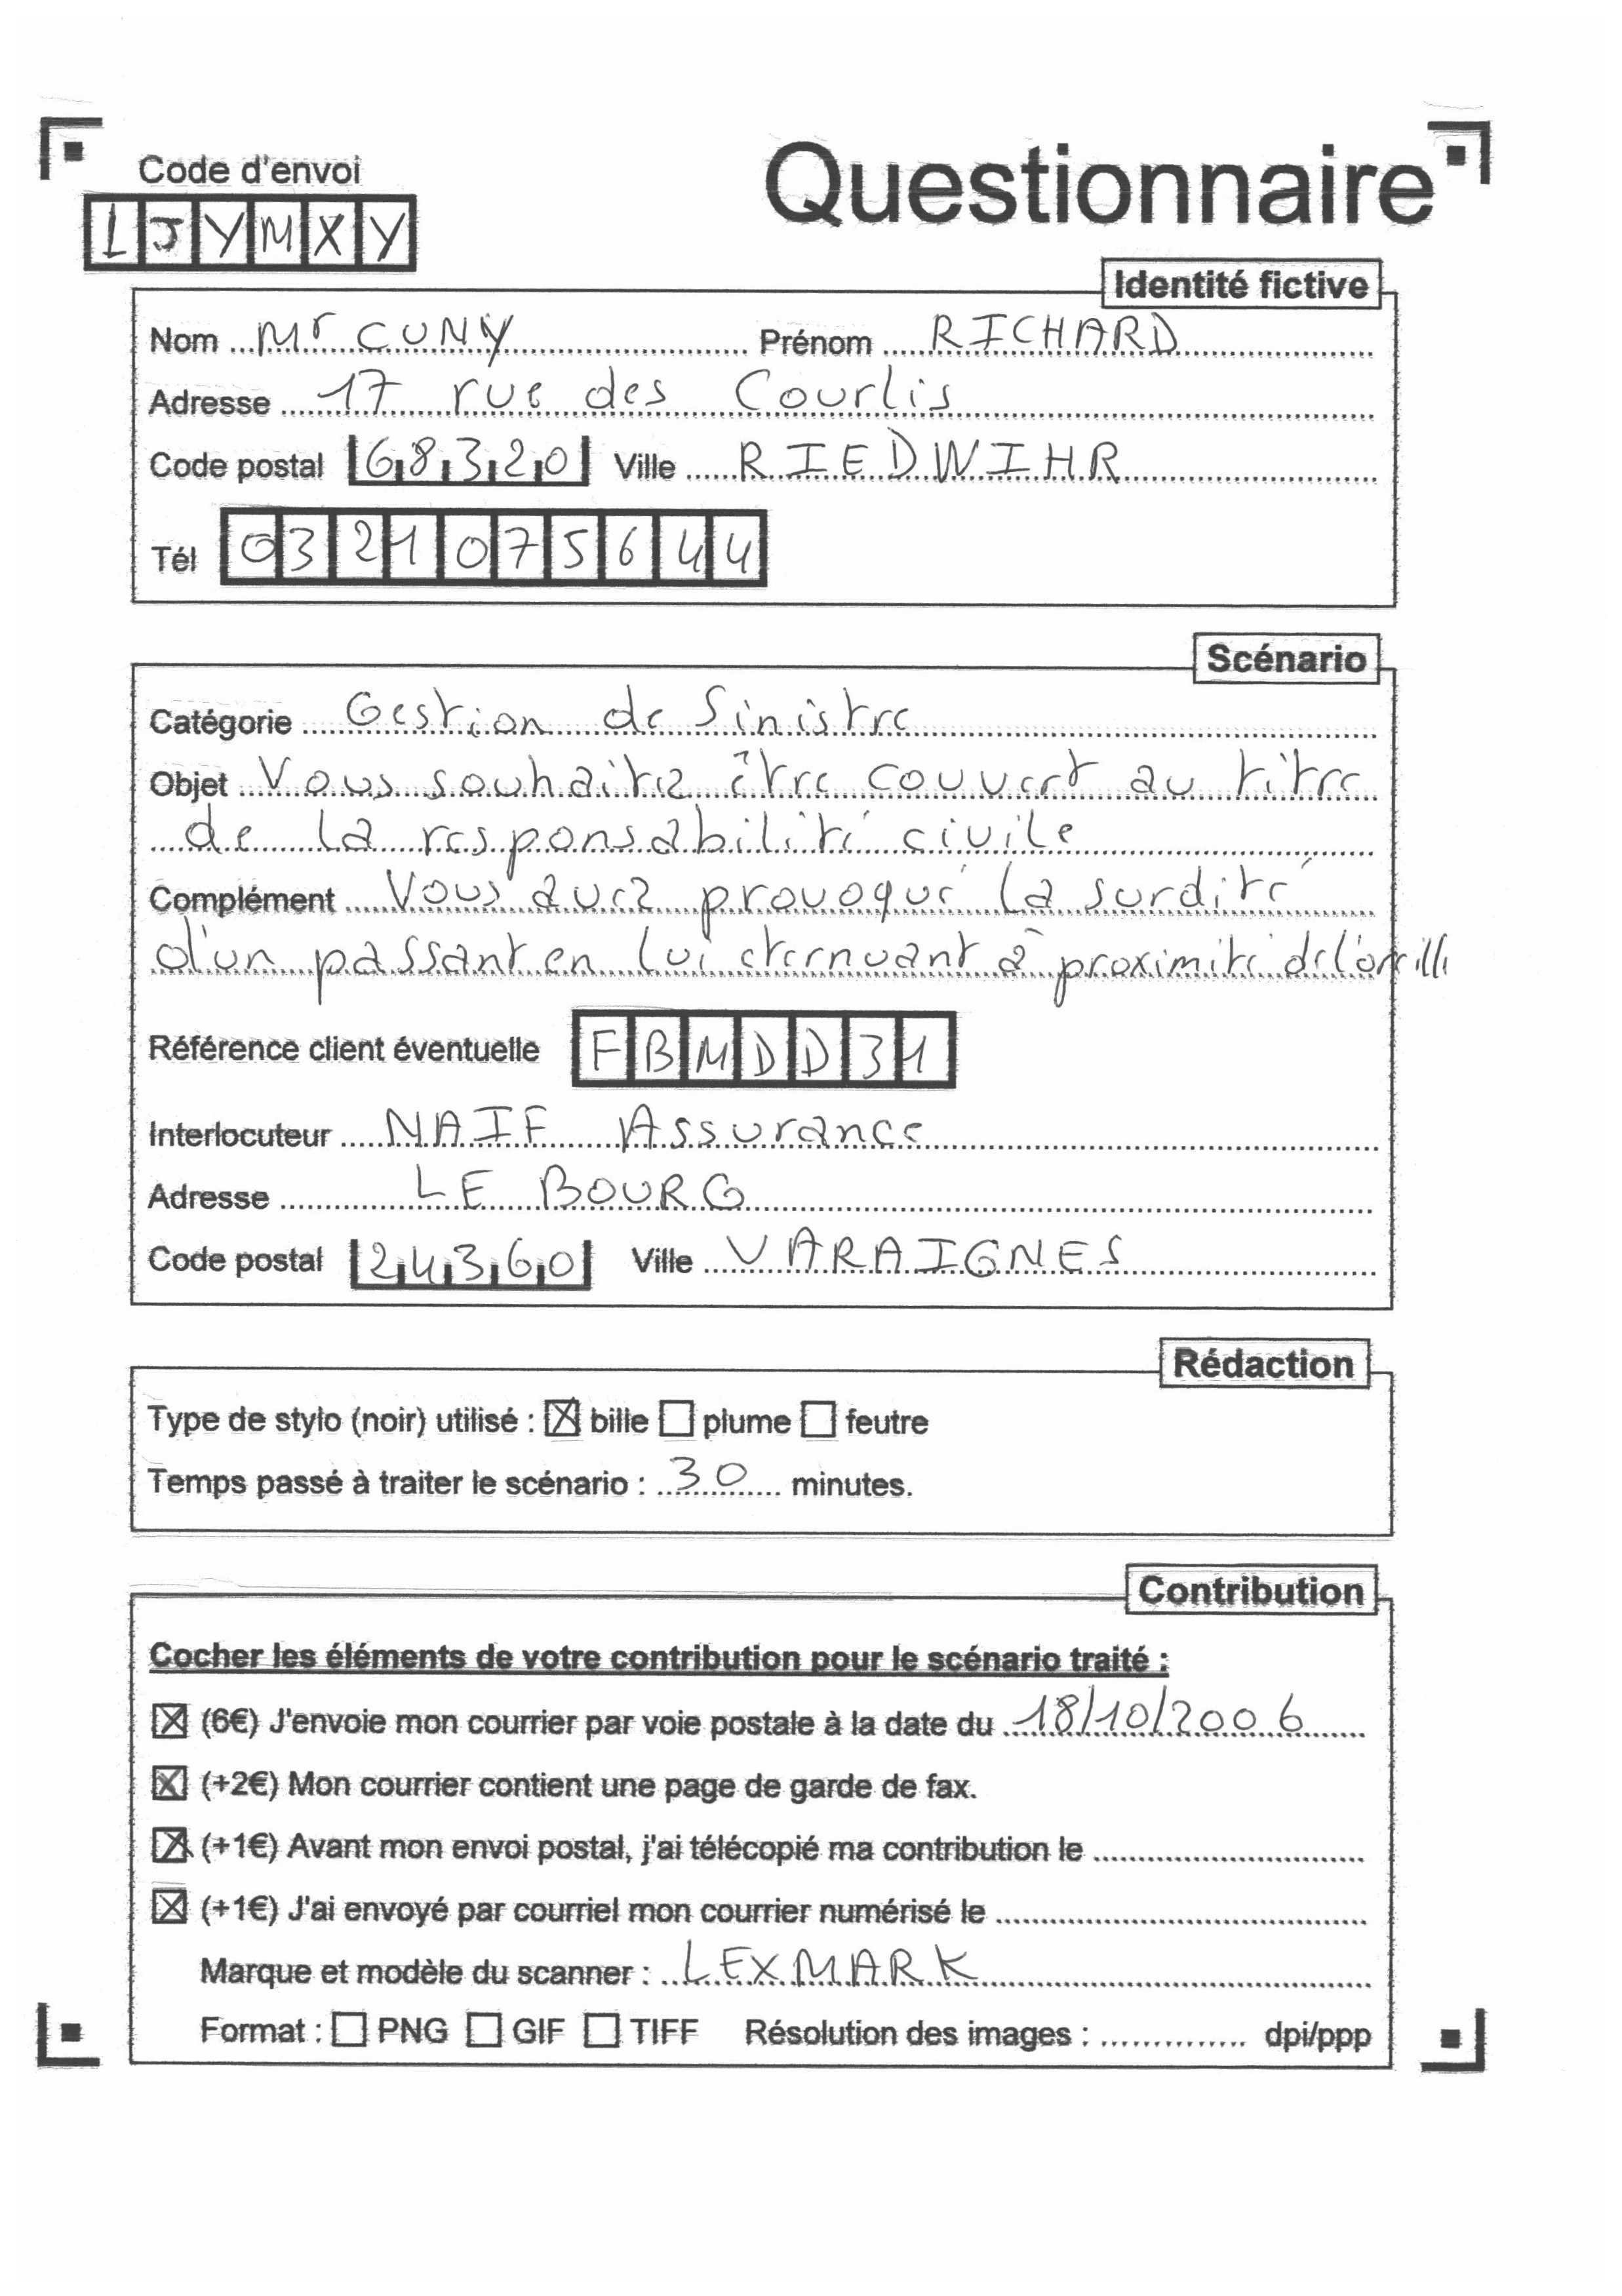 Code d'envoi
Questionnaire
LJYMXY
Identité fictive
Nom Mr CUNY Prénom RICHARD
Adresse 17 rue des Courlis
Code postal 68320 Ville RIEDWIHR
Tél 0321075644
Scénario
Catégorie Gestion de Sinistre
Objet Vous souhaitez être couvert au titre
de la responsabilité civile
Complément Vous avez provoqué la surdité
d'un passant en lui éternuant à proximité de l'oreille
Référence client éventuelle FBMDD31
Interlocuteur NAIF Assurance
Adresse LE BOURG
Code postal 24360 Ville VARAIGNES
Rédaction
Type de stylo (noir) utilisé : ☒ bille ☐ plume ☐ feutre
Temps passé à traiter le scénario : 30 minutes.
Contribution
Cocher les éléments de votre contribution pour le scénario traité :
☒ (6€) J'envoie mon courrier par voie postale à la date du 18/10/2006
☒ (+2€) Mon courrier contient une page de garde de fax.
☒ (+1€) Avant mon envoi postal, j'ai télécopié ma contribution le
☒ (+1€) J'ai envoyé par courriel mon courrier numérisé le
Marque et modèle du scanner : LEXMARK
Format : ☐ PNG ☐ GIF ☐ TIFF Résolution des images : .............. dpi/ppp